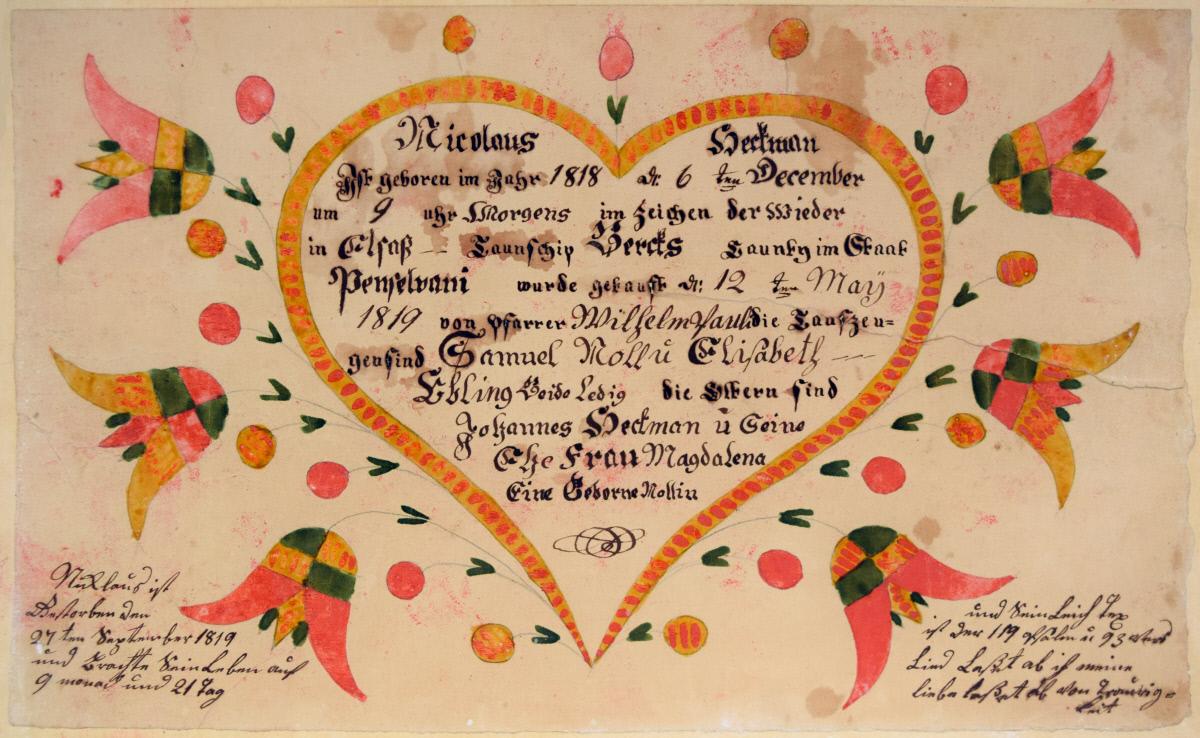 Nicolaus Heckman
Ist geboren im Jahr 1818 d: 6 ten December
um 9 uhr Morgens im Zeichen der Wieder
in Elsaß — Taunschip Bercks Caunty im Staat
Penselvani wurde getauft d: 12 ten May
1819 von Pfarrer Wilhelm Pauli die Taufzeu=
gen sind Samuel Moll u Elisabeth —
Ebling Beide Ledig die Eltern sind
Johannes Heckman ü Seine
Ehe Frau Magdalena
Eine Geborne Mollin
Niklaus ist
Gestorben den
27 ten September 1819
und Brachte Sein Leben auf
9 monat und 21 Tag
und Sein Leich Tex
ist der 119 Psalm u 93 vers
Lied Laßet ab ihr meine
lieben laßet ab von Traurig=
keit